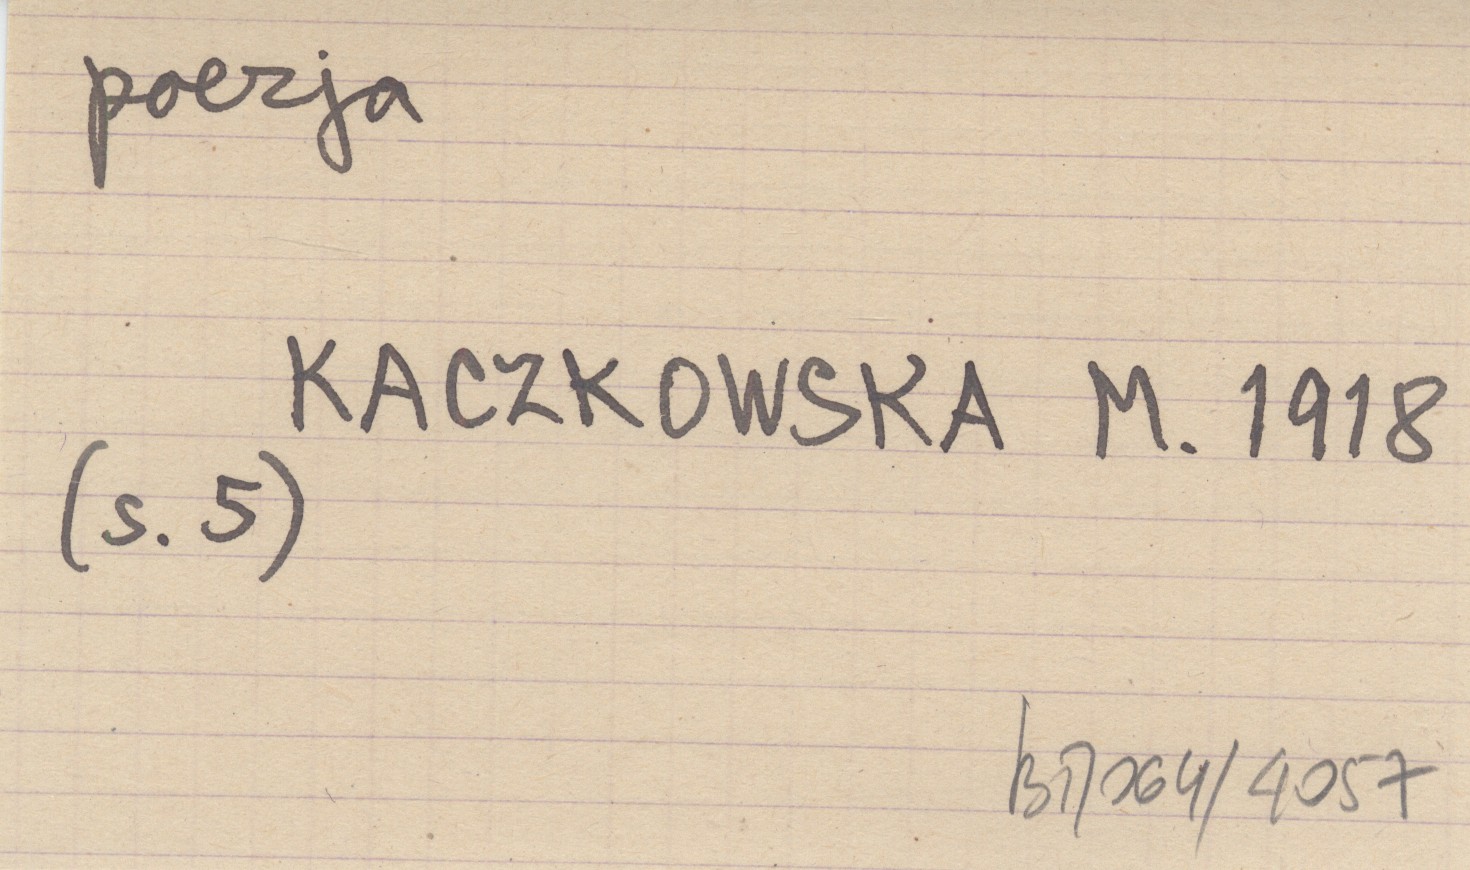 poezja
KACZKOWSKA M. 1918
(s. 5)
/4057